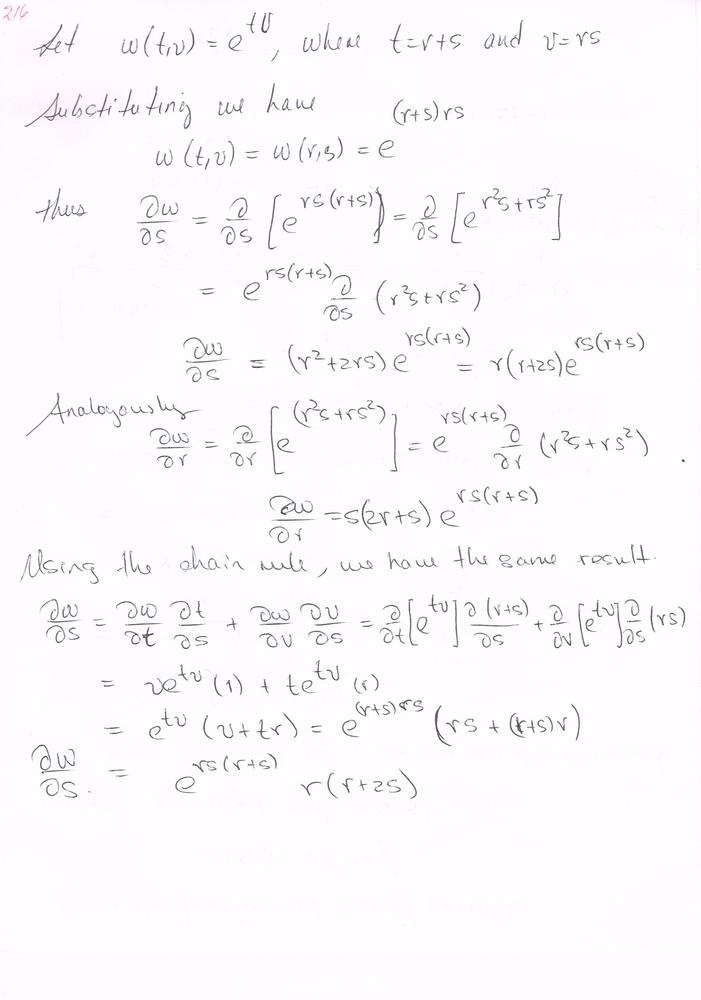 216
Let w(t,v) = e^{tv}, where t=r+s and v=rs
Substituting we have
w(t,v) = w(r,s) = e^{(r+s)rs}
thus ∂w/∂s = ∂/∂s [e^{rs(r+s)}] = ∂/∂s [e^{r²s+rs²}]
= e^{rs(r+s)} ∂/∂s (r²s+rs²)
∂w/∂s = (r²+2rs) e^{rs(r+s)} = r(r+2s)e^{rs(r+s)}
Analogously
∂w/∂r = ∂/∂r [e^{(r²s+rs²)}] = e^{rs(r+s)} ∂/∂r (r²s+rs²) .
∂w/∂r = s(2r+s) e^{rs(r+s)}
Using the chain rule, we have the same result.
∂w/∂s = ∂w/∂t ∂t/∂s + ∂w/∂v ∂v/∂s = ∂/∂t [e^{tv}] ∂(r+s)/∂s + ∂/∂v [e^{tv}] ∂/∂s (rs)
= ve^{tv} (1) + te^{tv} (r)
= e^{tv} (v+tr) = e^{(r+s)rs} (rs + (r+s)r)
∂w/∂s. = e^{rs(r+s)} r(r+2s)